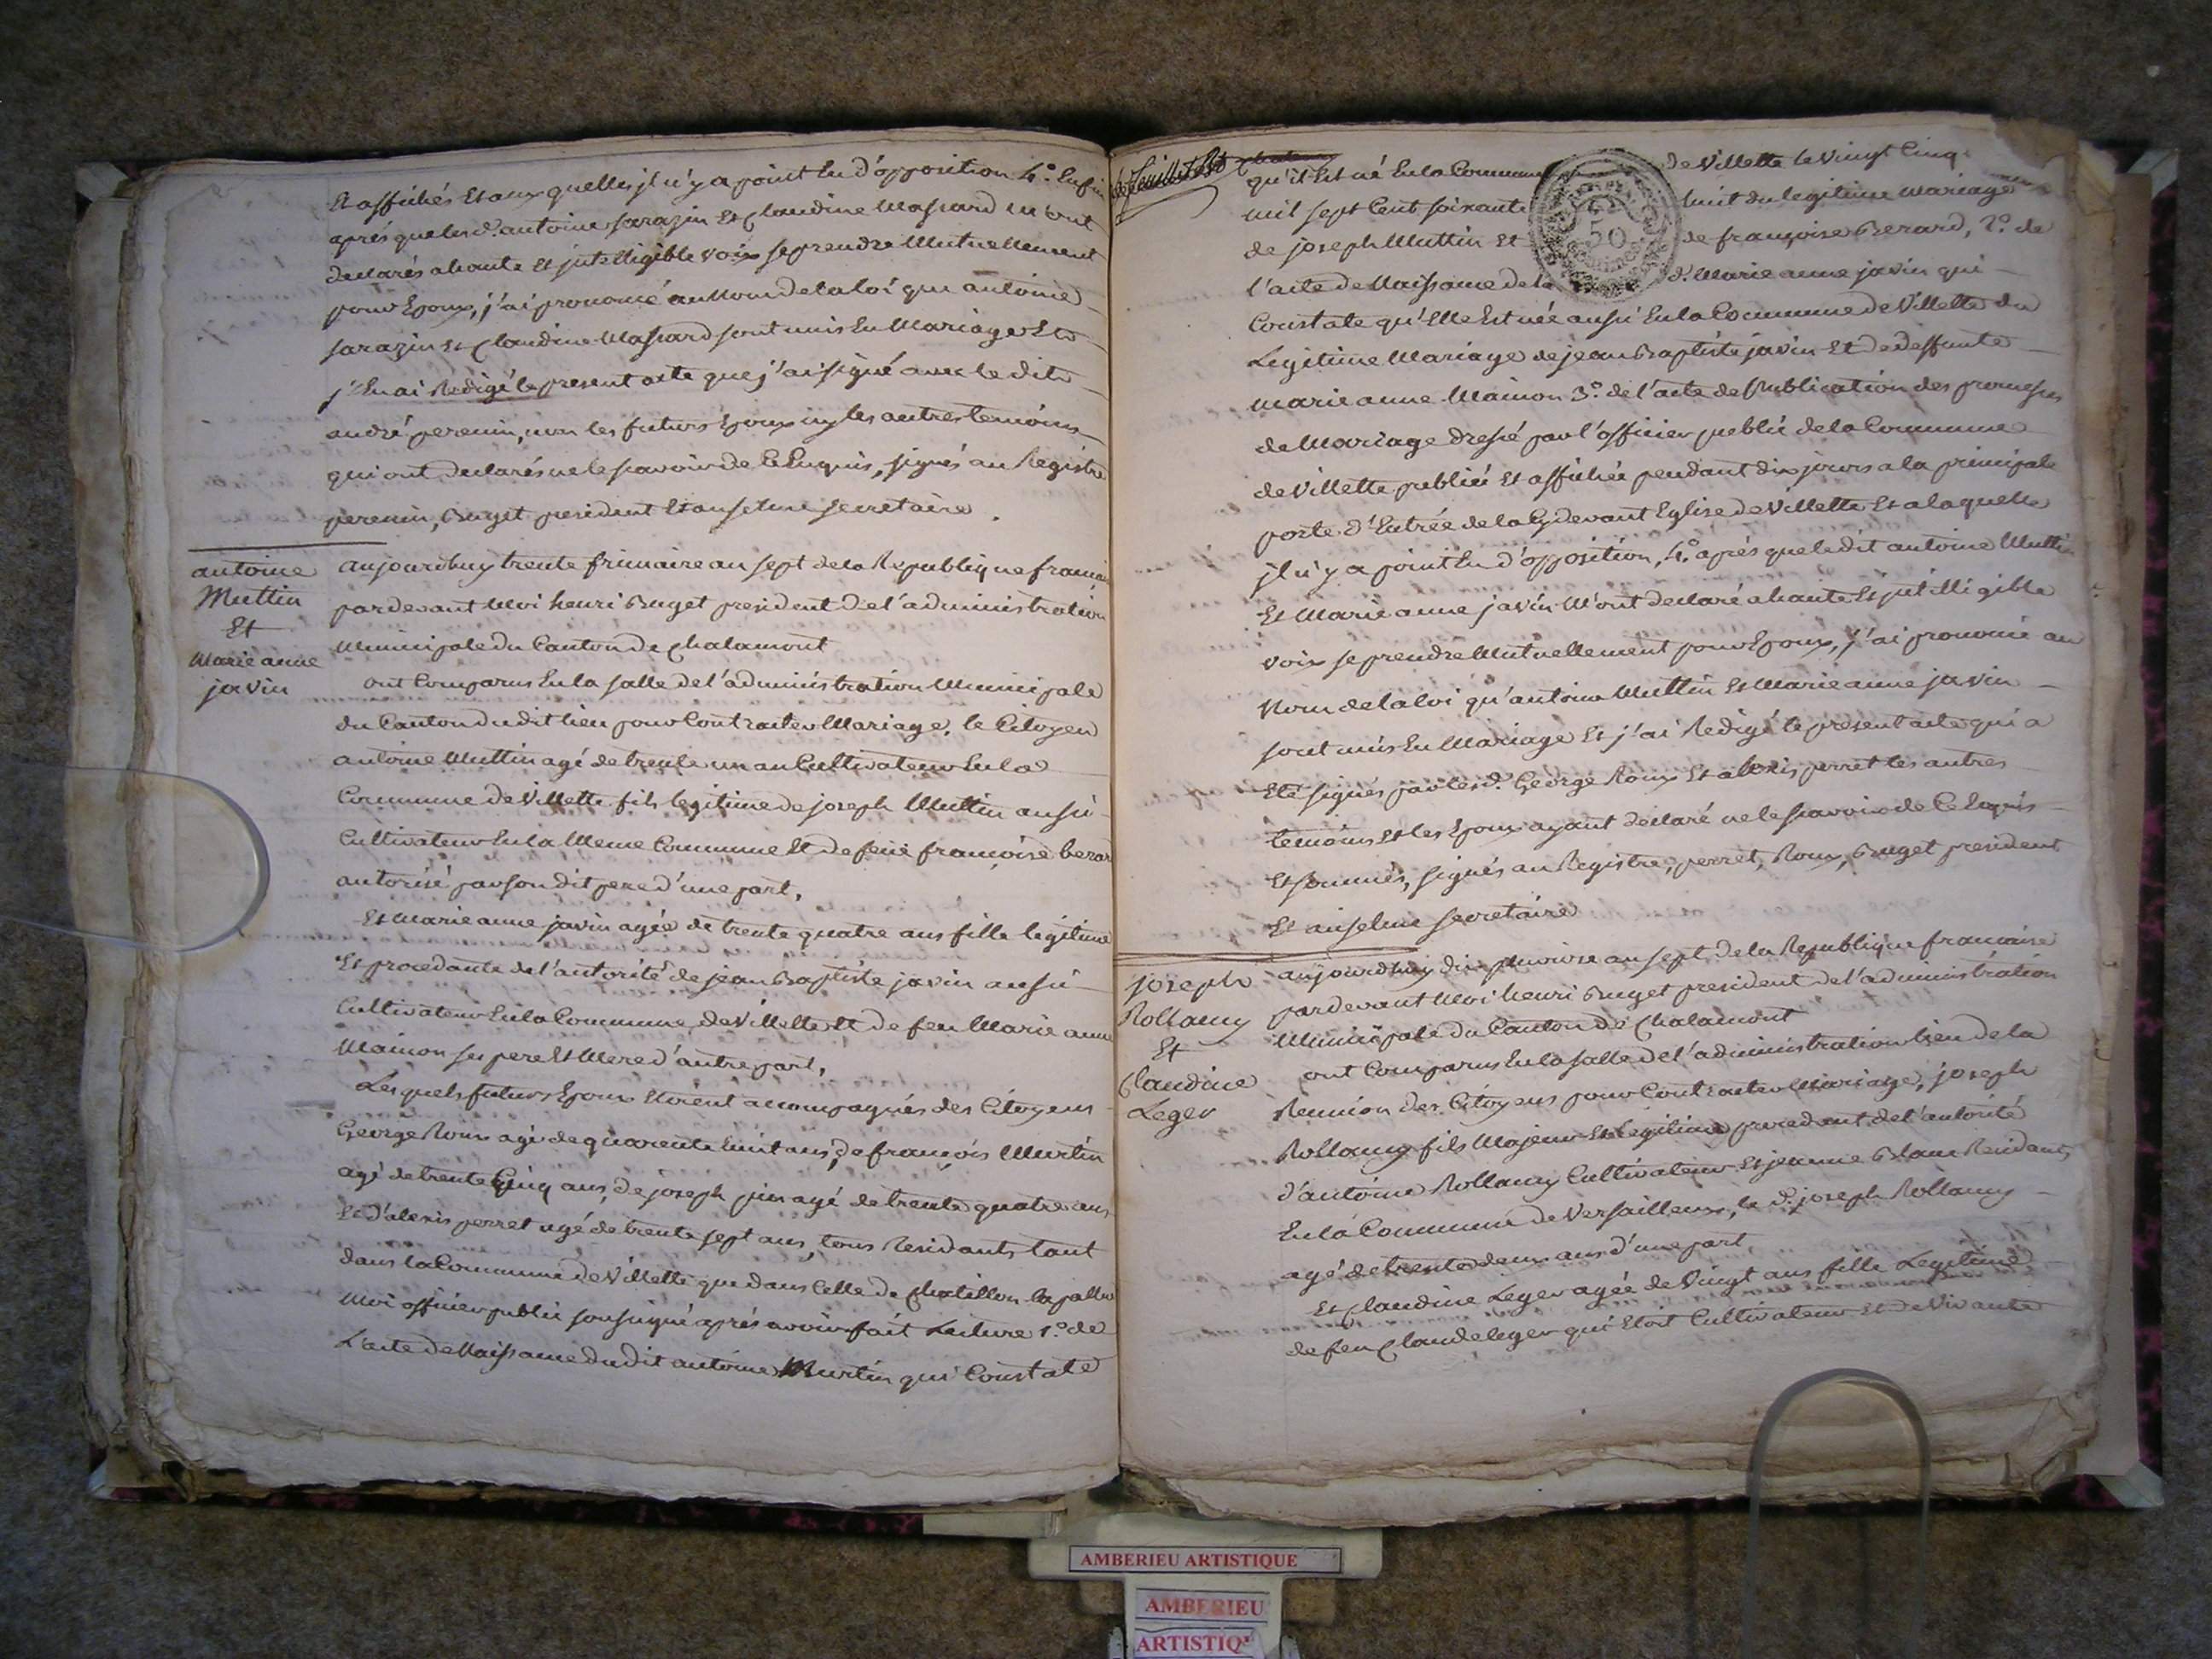 Et affichés Et aux quelles jl n'y a point Eu d'opposition 4.° Enfin
aprés que les d. antoine sarazin Et Claudine Massard m'ont
declarés a haute Et jntelligible voix se prendre Mutuellement
pour Epoux, j'ai prononcé au Nom de la loi que antoine
sarazin Et Claudine Massard sont unis En Mariage Et
j'En ai Redigé le present acte que j'ai signé avec le dit
andré perenin, non les futurs Epoux ny les autres temoins
qui ont declarés ne le sçavoir de Ce Enquis, signés au Registre
perenin, Buget president Et anselme secretaire.
antoine
Muttin
Et
Marie anne
javin
aujourdhuy trente frimaire an sept de la Republique francaise
pardevant Moi henri Buget president de l'administration
Municipale du Canton de Chalamont
ont Comparus En la salle de l'administration Municipale
du Canton du dit lieu pour Contracter Mariage, le Citoyen
antoine Muttin agé de trente un an Cultivateur En la
Commune de Villette fils legitime de joseph Muttin aussi
Cultivateur En la Meme Commune Et de feüe françoise berar
autorisé par son dit pere d'une part,
Et Marie anne javin agée de trente quatre ans fille legitime
Et procedante de l'autorité de jean Baptiste javin aussi
Cultivateur En la Commune de Villette Et de feu Marie anne
Mainon ses pere Et Mere d'autre part,
Lesquels futurs Epoux Etoient accompagnés des Citoyens
George Roux agé de quarente huit ans, de francois Murtin
agé de trente Cinq ans, de joseph agé de trente quatre ans
Et d'alexis perret agé de trente sept ans, tous Residants tant
dans la Commune de Villette que dans Celle de Chatillon la pallud
Moi officier public soussigné aprés avoir fait Lecture 1.° de
L'acte de Naissance du dit antoine Murtin qui Constate
qu'il Est né En la Commune de Villette le Vingt Cinq
mil sept Cent soixante huit du legitime Mariage
de joseph Muttin Et de françoise Berard, 2.° de
l'acte de Naissance de la d. Marie anne javin qui
Constate qu'Elle Est née aussi En la Commune de Villette du
Legitime Mariage de jean Baptiste javin Et de deffunte
marie anne Mainon 3.° de l'acte de Publication des promesses
de Mariage dressé par l'officier public de la Commune
de Villette publiée Et affichée pendant dix jours a la principale
porte d'Entrée de la Cy devant Eglise de Villette Et a laquelle
jl n'y a point Eu d'opposition, 4.° aprés que le dit antoine Muttin
Et Marie anne javin M'ont declaré a haute Et jntélligible
voix se prendre Mutuellement pour Epoux, j'ai prononcé au
Nom de la loi qu'antoine Muttin Et Marie anne javin
sont unis En Mariage Et j'ai Redigé le present acte qui a
Eté signés par les d. George Roux Et alexis perret les autres
temoins Et les Epoux ayant declaré ne le sçavoir de Ce Enquis
Et sommés, signés au Registre, perret, Roux, Buget president
Et anselme secretaire
joseph
Rollamy
Et
Claudine
Leger
aujourdhuy dix pluviose an sept de la Republique francaise
pardevant Moi henri Buget president de l'administration
Municipale du Canton de Chalamont
ont Comparus En la salle de l'administration lieu de la
Reunion des Citoyens pour Contracter Mariage, joseph
Rollamy fils Majeur Et legitime procedant de l'autorité
d'antoine Rollamy Cultivateur Et jeanne Blanc Residants
En la Commune de Versailleux, le d. joseph Rollamy
agé de trente deux ans d'une part
Et Claudine Leger agée de Vingt ans fille Legitime
de feu Claude leger qui Etoit Cultivateur Et de Vivante
50
AMBERIEU ARTISTIQUE
AMBERIEU
ARTISTIQ